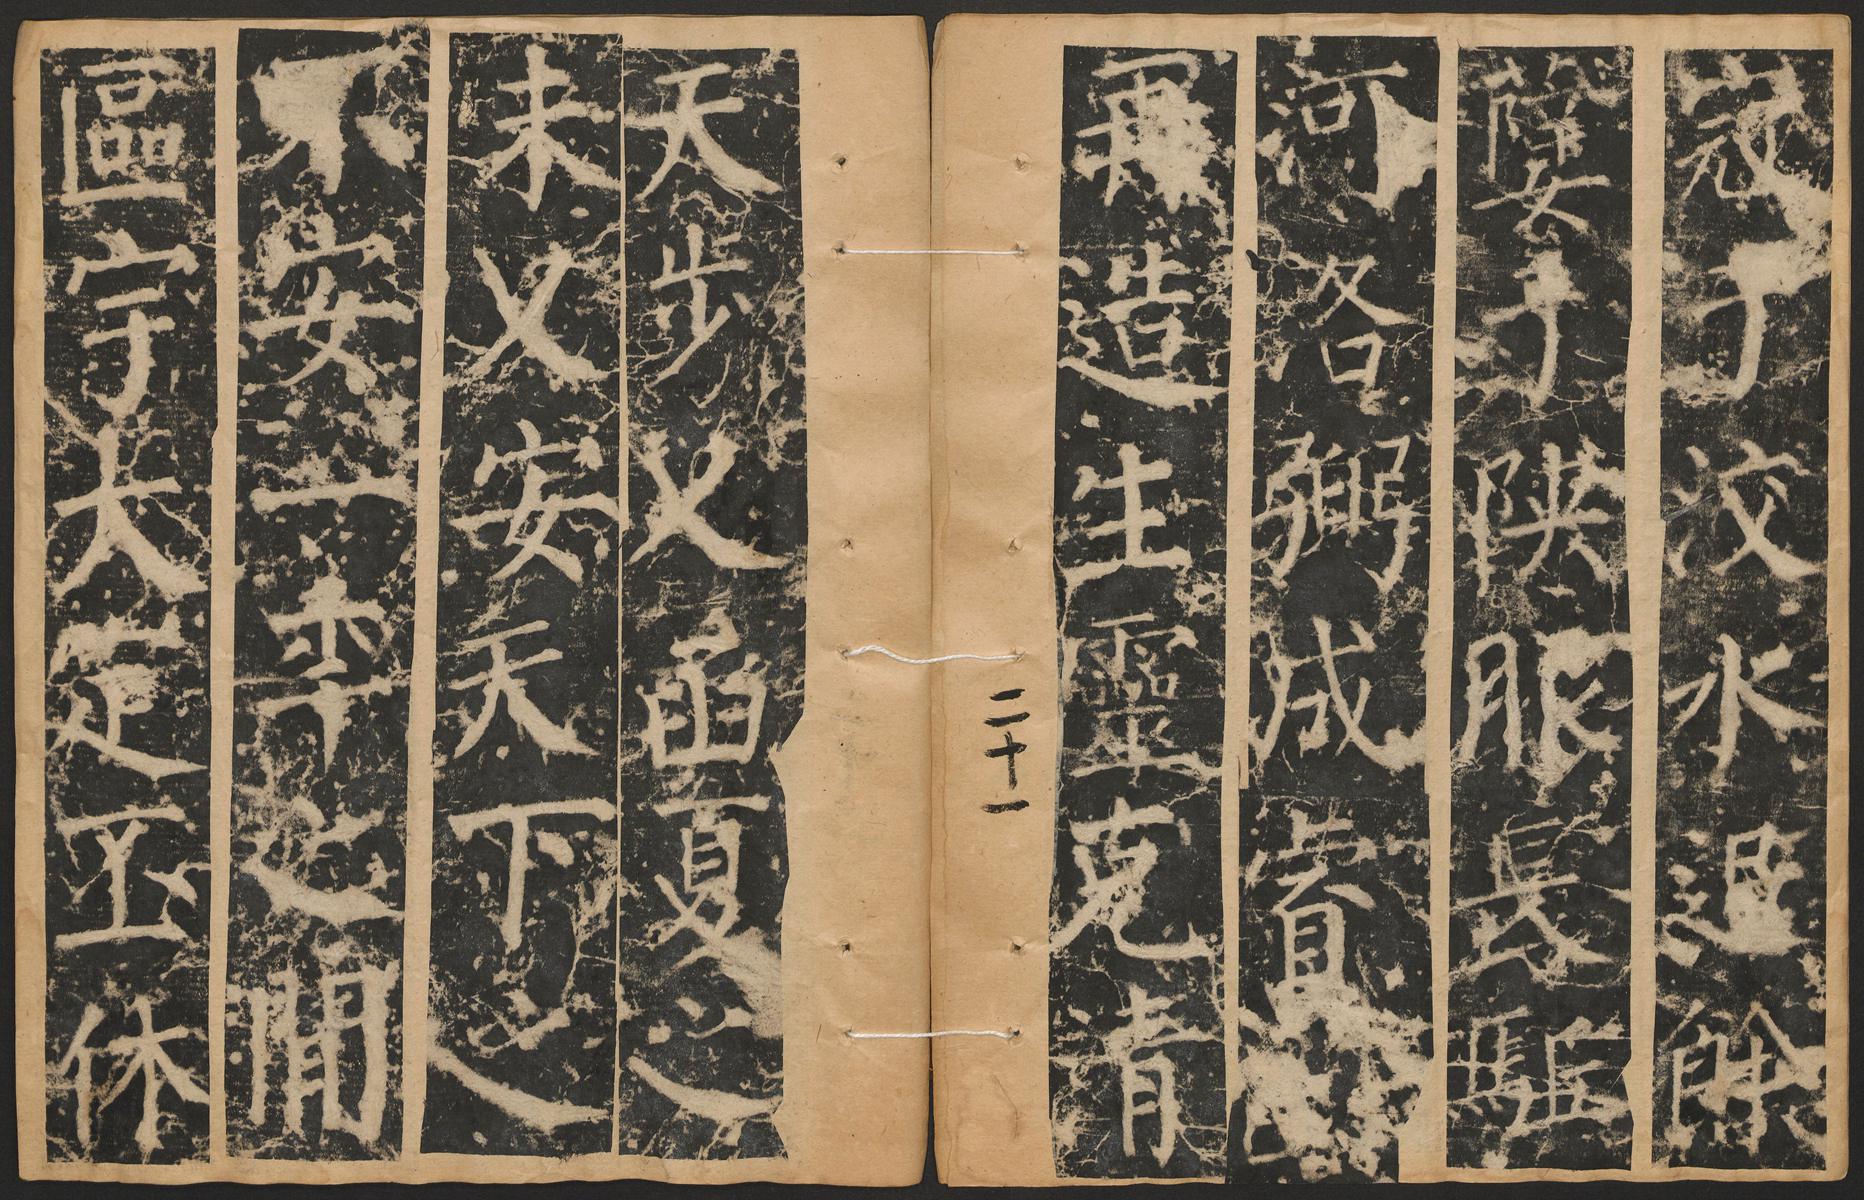 寇于洨水餘
孽于陝服長驅
河洛弼成睿
再造生靈克清
二十一
天步乂函夏之
未乂安天下之
不安一秊之閒
區宇大定休